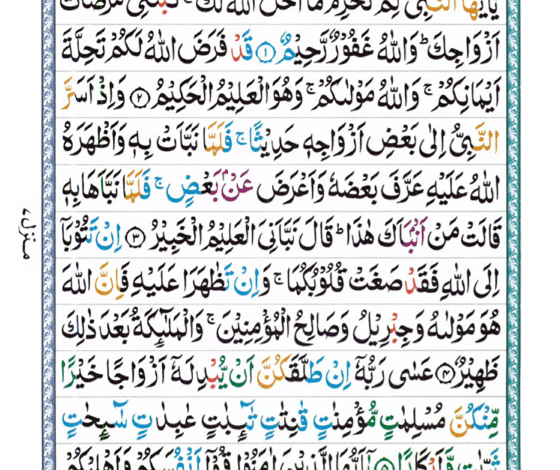 يٰۤاَيُّهَا النَّبِىُّ لِمَ تُحَرِّمُ مَاۤ اَحَلَّ اللّٰهُ لَكَ‌ۚ تَبۡتَغِىۡ مَرۡضَاتَ
اَزۡوَاجِكَ‌ؕ وَاللّٰهُ غَفُوۡرٌ رَّحِيۡمٌ ﴿۱﴾ قَدۡ فَرَضَ اللّٰهُ لَكُمۡ تَحِلَّةَ
اَيۡمَانِكُمۡ‌ۚ وَاللّٰهُ مَوۡلٰٮكُمۡ‌ۚ وَهُوَ الۡعَلِيۡمُ الۡحَكِيۡمُ ﴿۲﴾ وَاِذۡ اَسَرَّ
النَّبِىُّ اِلٰى بَعۡضِ اَزۡوَاجِهٖ حَدِيۡثًا‌ۚ فَلَمَّا نَبَّاَتۡ بِهٖ وَاَظۡهَرَهُ
اللّٰهُ عَلَيۡهِ عَرَّفَ بَعۡضَهٗ وَاَعۡرَضَ عَنۡۢ بَعۡضٍ‌ۚ فَلَمَّا نَبَّاَهَا بِهٖ
قَالَتۡ مَنۡ اَنۡۢبَاَكَ هٰذَا‌ؕ قَالَ نَبَّاَنِىَ الۡعَلِيۡمُ الۡخَبِيۡرُ ﴿۳﴾ اِنۡ تَتُوۡبَاۤ
اِلَى اللّٰهِ فَقَدۡ صَغَتۡ قُلُوۡبُكُمَا‌ۚ وَاِنۡ تَظٰهَرَا عَلَيۡهِ فَاِنَّ اللّٰهَ
هُوَ مَوۡلٰٮهُ وَجِبۡرِيۡلُ وَصَالِحُ الۡمُؤۡمِنِيۡنَ‌ۚ وَالۡمَلٰٓئِكَةُ بَعۡدَ ذٰلِكَ
ظَهِيۡرٌ ﴿۴﴾ عَسٰى رَبُّهٗۤ اِنۡ طَلَّقَكُنَّ اَنۡ يُّبۡدِلَهٗۤ اَزۡوَاجًا خَيۡرًا
مِّنۡكُنَّ مُسۡلِمٰتٍ مُّؤۡمِنٰتٍ قٰنِتٰتٍ تٰٓٮِٕبٰتٍ عٰبِدٰتٍ سٰٓٮِٕحٰتٍ
ثَيِّبٰتٍ وَّاَبۡكَارًا ﴿۵﴾ يٰۤاَيُّهَا الَّذِيۡنَ اٰمَنُوۡا قُوۡۤا اَنۡفُسَكُمۡ وَاَهۡلِيۡكُمۡ
منزل ۷